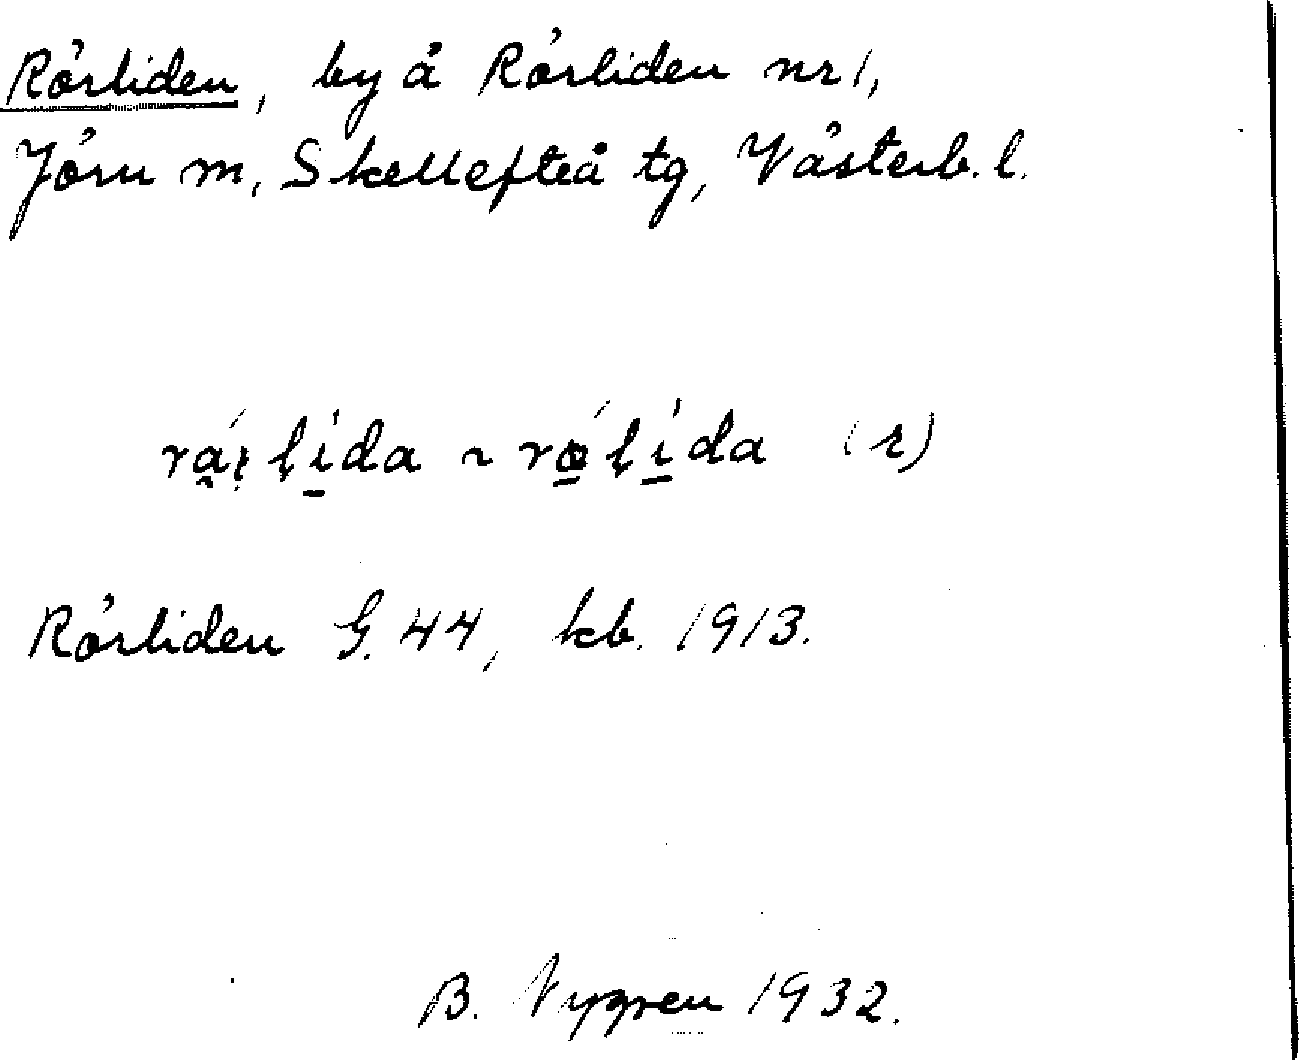 Rörliden, by å Rörliden nr 1,
Jörn sn, Skellefteå tg, Västerb. l.
(r)
Rörliden G. 44, kb. 1913.
B. Nygren 1932.